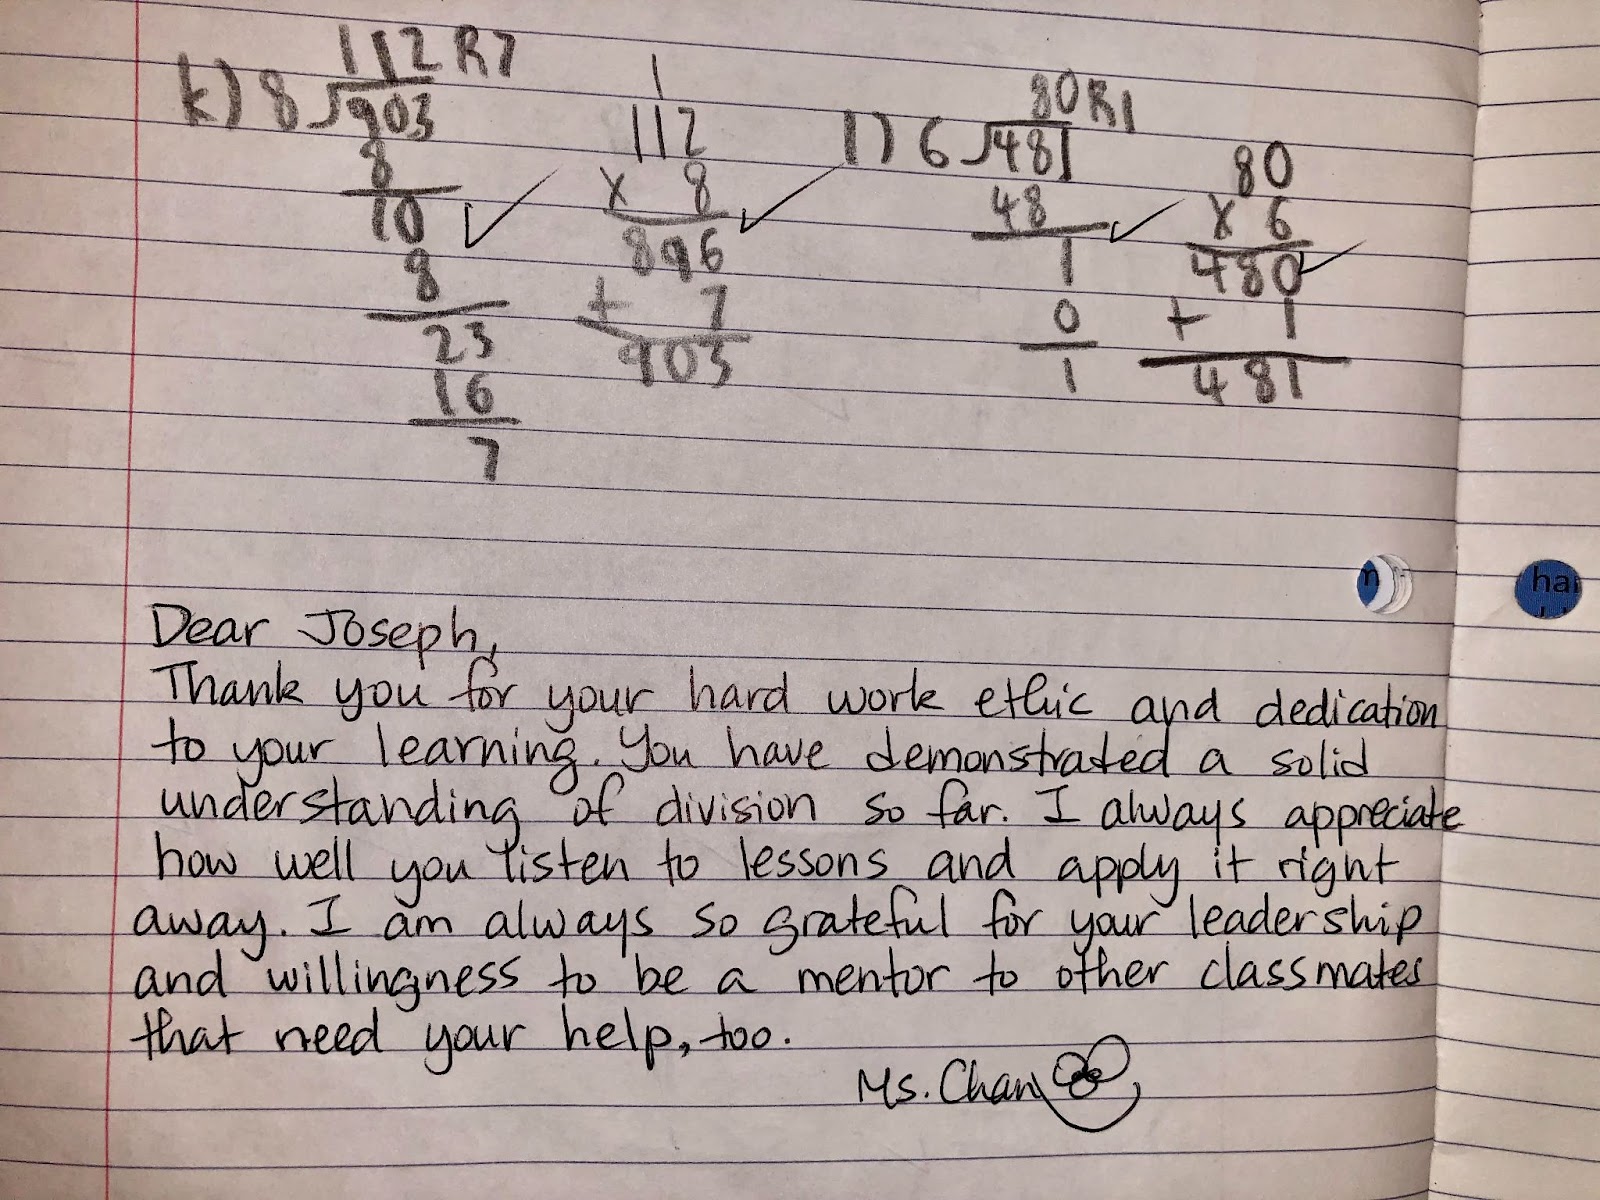 112 R7
k) 8 903
8
10
8
23
16
7
1
112
x 8
896
+ 7
903
80 R1
l) 6 481
48
1
0
1
80
x 6
480
+ 1
481
Dear Joseph,
Thank you for your hard work ethic and dedication
to your learning. You have demonstrated a solid
understanding of division so far. I always appreciate
how well you listen to lessons and apply it right
away. I am always so grateful for your leadership
and willingness to be a mentor to other classmates
that need your help, too.
Ms. Chan